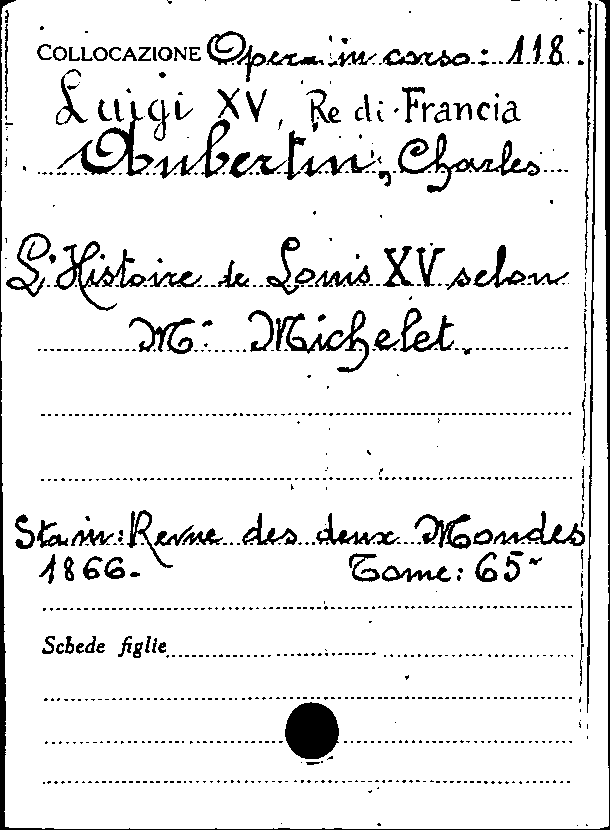 COLLOCAZIONE Opera in corso: 118.
Luigi XV, Re di Francia
Aubertin, Charles
L'Histoire de Louis XV selon
Mr. Michelet.
Sta in: Revue des deux Mondes
1866. Tome: 65
Schede figlie